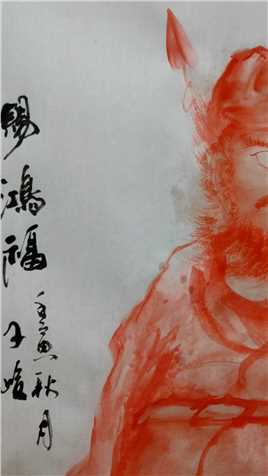 賜鴻福
壬寅秋月
子